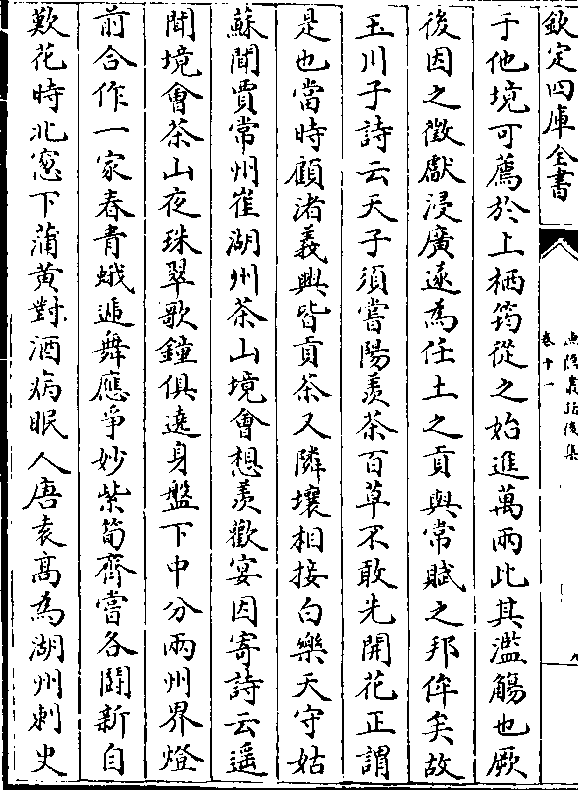 欽定四庫全書
漁隱叢話後集
卷十一
于他境可薦於上栖筠從之始進萬兩此其濫觴也厥
後因之徵獻浸廣遂為任土之貢與常賦之邦侔矣故
玉川子詩云天子須嘗陽羨茶百草不敢先開花正謂
是也當時顧渚義興皆貢茶又隣壤相接白樂天守姑
蘇聞賈常州崔湖州茶山境會想羨歡宴因寄詩云遥
聞境會茶山夜珠翠歌鐘俱遶身盤下中分兩州界燈
前合作一家春青蛾遞舞應爭妙紫筍齊嘗各鬭新自
歎花時北窓下蒲黄對酒病眠人唐袁髙為湖州刺史